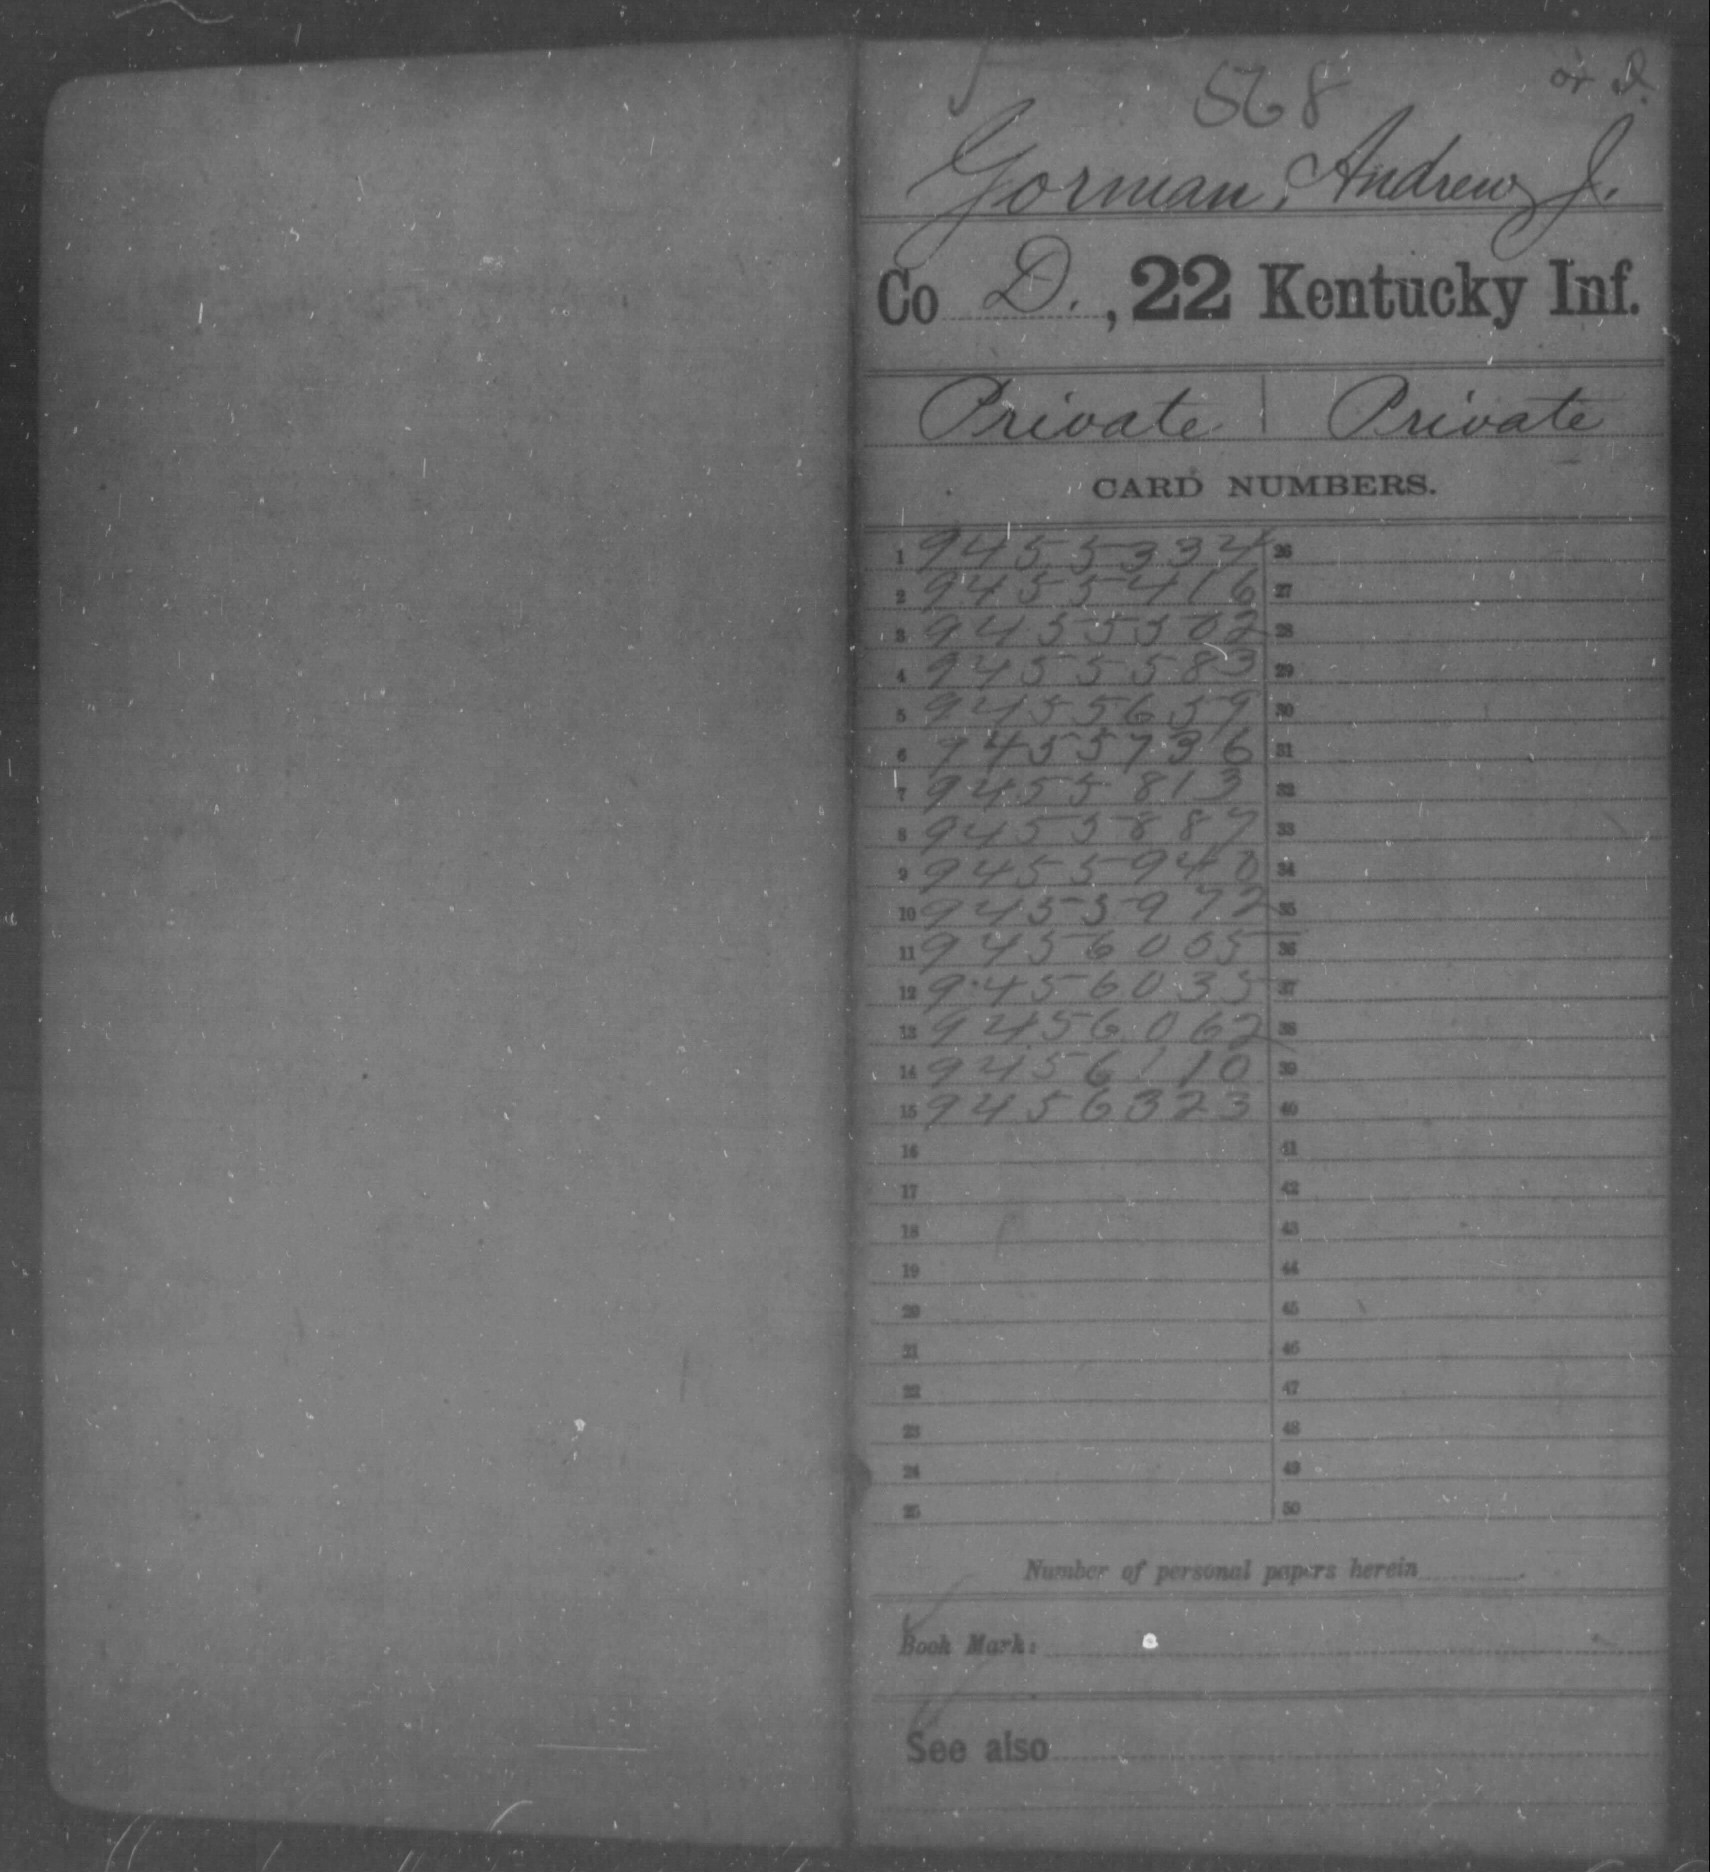 568 or D.
Gorman, Andrew J.
Co D., 22 Kentucky Inf.
Private | Private
CARD NUMBERS.
1 9455334 26
2 9455416 27
3 9455502 28
4 9455583 29
5 9455659 30
6 9455736 31
7 9455813 32
8 9455887 33
9 9455940 34
10 9455972 35
11 9456005 36
12 9456035 37
13 9456062 38
14 9456110 39
15 9456323 40
16 41
17 42
18 43
19 44
20 45
21 46
22 47
23 48
24 49
25 50
Number of personal papers herein
Book Mark:
See also